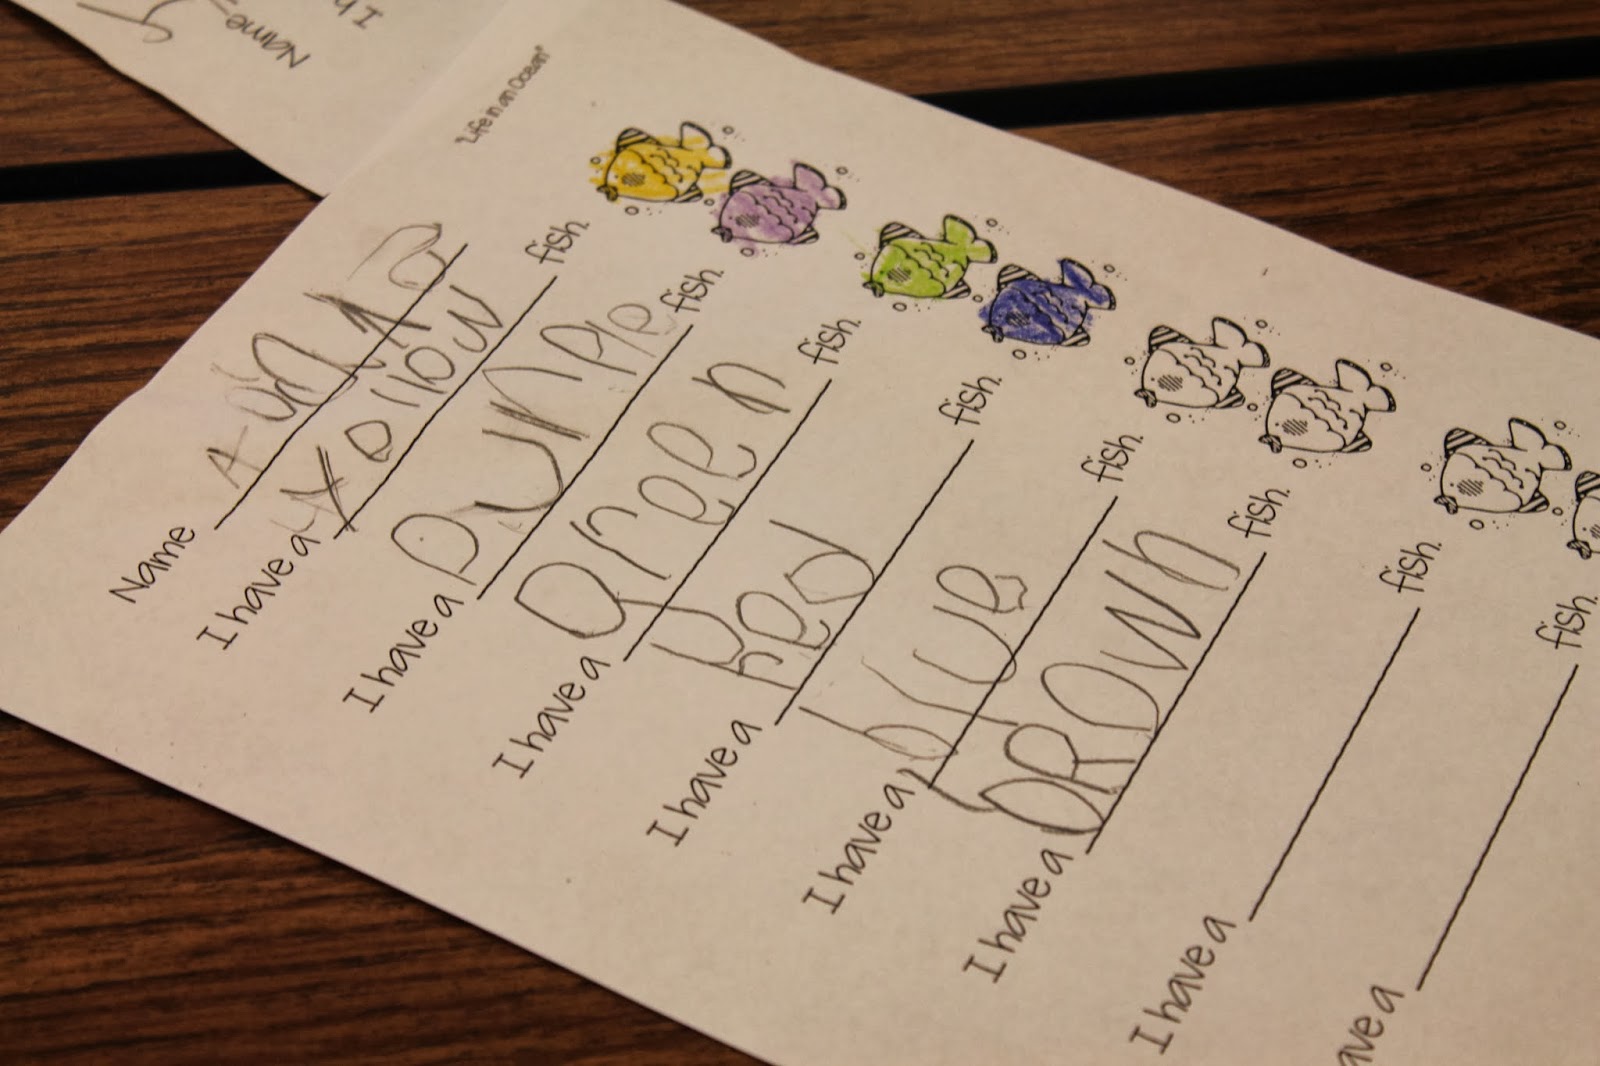 Name
I h
"Life in an Ocean"
Name
I have a yellow fish.
I have a purple fish.
I have a green fish.
I have a Red fish.
I have a blue fish.
I have a bROWn fish.
I have a fish.
ave a fish.